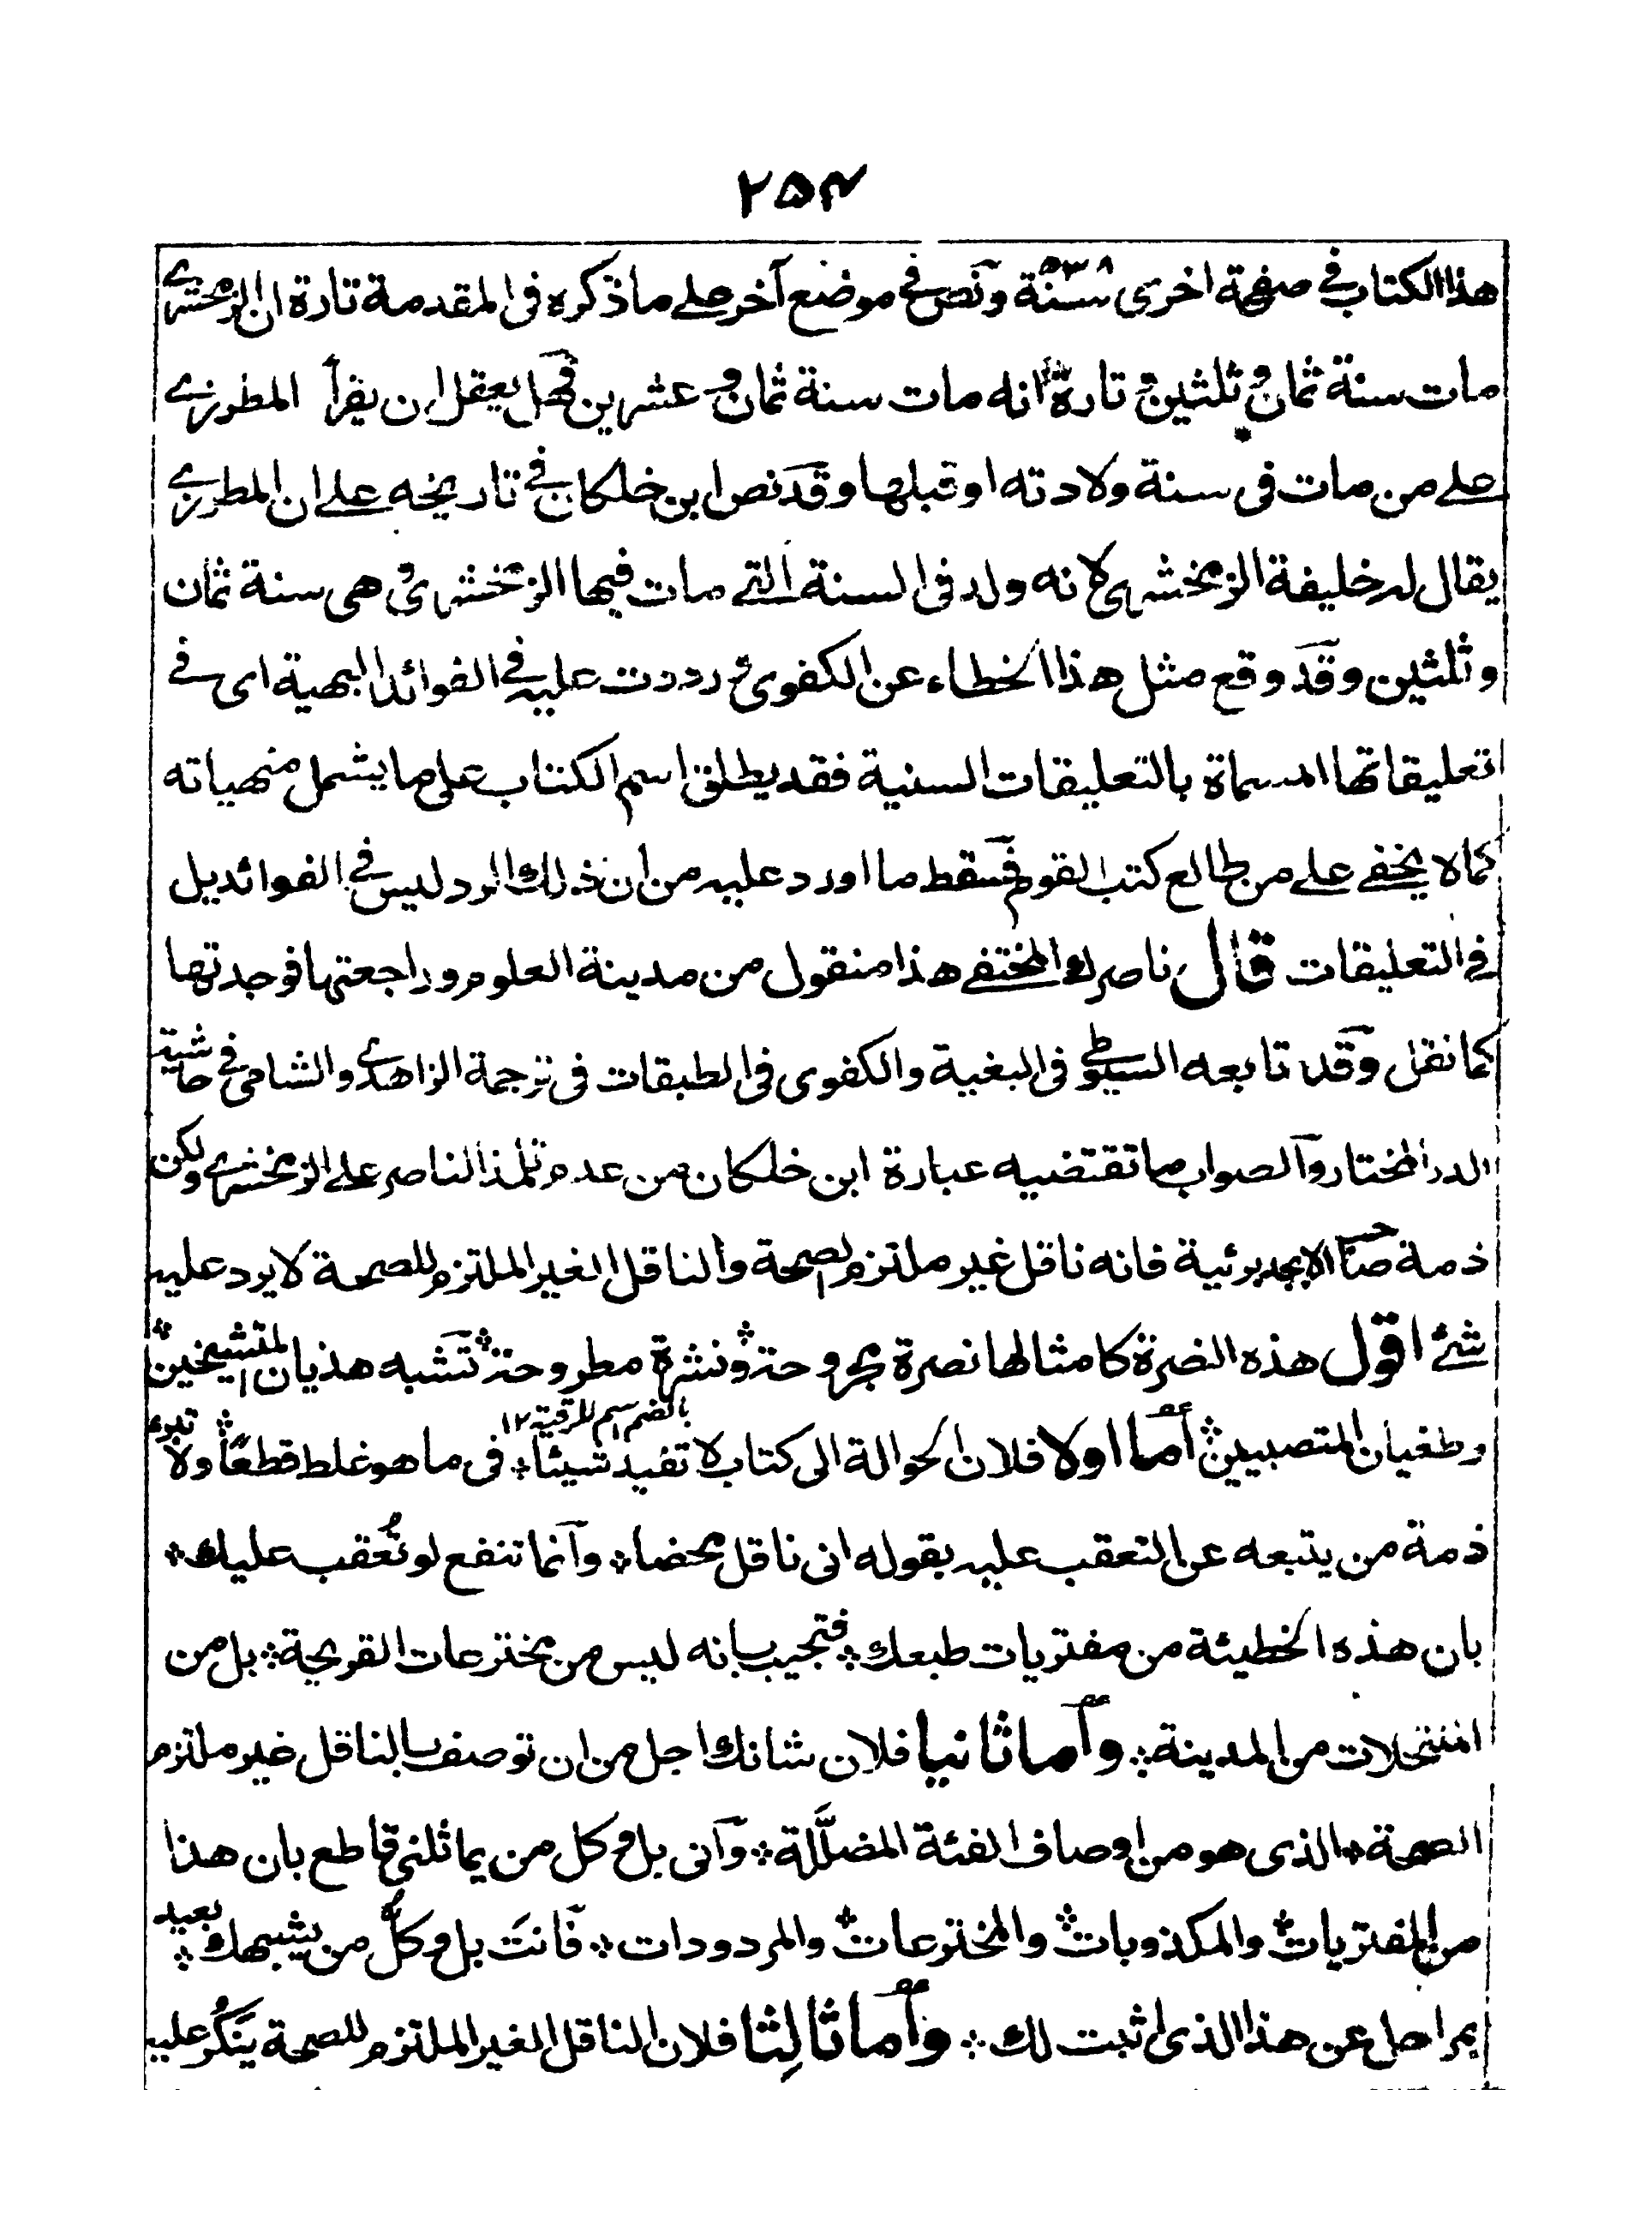 ٢٥٤
هذا الكتاب فى صفحة اخرى سنة ٥٣٨ ونص فى موضع آخر على ما ذكره فى المقدمة تارة ان الزمخشرى
مات سنة ثمان وثلثين وتارة انه مات سنة ثمان وعشرين فهل يعقل ان يقرأ المطرزى
على من مات فى سنة ولادته او قبلها وقد نص ابن خلكان فى تاريخه على ان المطرزى
يقال له خليفة الزمخشرى لانه ولد فى السنة التى مات فيها الزمخشرى وهى سنة ثمان
وثلثين وقد وقع مثل هذا الخطاء عن الكفوى ورددت عليه فى الفوائد البهية اى فى
تعليقاتها المسماة بالتعليقات السنية فقد يطلق اسم الكتاب على ما يشمل منهياته
كما لا يخفى على من طالع كتب القوم فسقط ما اورد عليه من ان ذلك الرد ليس فى الفوائد بل
فى التعليقات قال ناصرك المختفى هذا منقول من مدينة العلوم وراجعتها فوجدتها
كما نقل وقد تابعه السيوطى فى البغية والكفوى فى الطبقات فى ترجمة الزاهدى والشامى فى حاشية
الدر المختار والصواب ما تقتضيه عبارة ابن خلكان من عدم تلمذ الناصر على الزمخشرى ولكن
ذمة صاحب الابجد برئية فانه ناقل غير ملتزم لصحة والناقل الغير الملتزم للصحة لا يرد عليه
شئ اقول هذه النصرة كامثالها نصرة مجروحة ونشرة مطروحة تشبه هذيان المتشيخين
بالضم اسم للرقية ١٢
وطغيان المتصبيين أما اولا فلان الحوالة الى كتاب لا تفيد شيئا فى ما هو غلط قطعا ولا تبرء
ذمة من يتبعه عن التعقب عليه بقوله انى ناقل محضا وانما تنفع لو تُعقب عليك
بان هذه الخطيئة من مفتريات طبعك فتجيب بانه ليس من مخترعات القريحة بل من
انتحلات من المدينة وأما ثانيا فلان شانك اجل من ان توصف بالناقل غير ملتزم
الصحة الذى هو من اوصاف الفئة المضلَّلة وانى بل وكل من يماثلنى قاطع بان هذا
من المفتريات والمكذوبات والمخترعات والمردودات فانتَ بل وكلُّ من يشبهك بعيد
بمراحل عن هذا الذى اثبت لك وأما ثالِثا فلان الناقل الغير الملتزم للصحة يَنكُر عليه